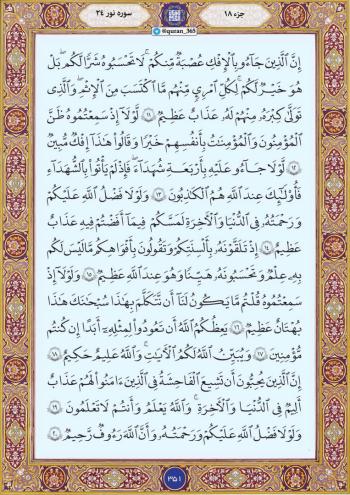 جزء ۱۸
@quran_365
سوره نور ۲۴
إِنَّ الَّذِينَ جَاءُو بِالْإِفْكِ عُصْبَةٌ مِّنكُمْ ۚ لَا تَحْسَبُوهُ شَرًّا لَّكُم ۖ بَلْ
هُوَ خَيْرٌ لَّكُمْ ۚ لِكُلِّ امْرِئٍ مِّنْهُم مَّا اكْتَسَبَ مِنَ الْإِثْمِ ۚ وَالَّذِي
تَوَلَّىٰ كِبْرَهُ مِنْهُمْ لَهُ عَذَابٌ عَظِيمٌ ﴿١١﴾ لَّوْلَا إِذْ سَمِعْتُمُوهُ ظَنَّ
الْمُؤْمِنُونَ وَالْمُؤْمِنَاتُ بِأَنفُسِهِمْ خَيْرًا وَقَالُوا هَٰذَا إِفْكٌ مُّبِينٌ
﴿١٢﴾ لَّوْلَا جَاءُو عَلَيْهِ بِأَرْبَعَةِ شُهَدَاءَ ۚ فَإِذْ لَمْ يَأْتُوا بِالشُّهَدَاءِ
فَأُولَٰئِكَ عِندَ اللَّهِ هُمُ الْكَاذِبُونَ ﴿١٣﴾ وَلَوْلَا فَضْلُ اللَّهِ عَلَيْكُمْ
وَرَحْمَتُهُ فِي الدُّنْيَا وَالْآخِرَةِ لَمَسَّكُمْ فِي مَا أَفَضْتُمْ فِيهِ عَذَابٌ
عَظِيمٌ ﴿١٤﴾ إِذْ تَلَقَّوْنَهُ بِأَلْسِنَتِكُمْ وَتَقُولُونَ بِأَفْوَاهِكُم مَّا لَيْسَ لَكُم
بِهِ عِلْمٌ وَتَحْسَبُونَهُ هَيِّنًا وَهُوَ عِندَ اللَّهِ عَظِيمٌ ﴿١٥﴾ وَلَوْلَا إِذْ
سَمِعْتُمُوهُ قُلْتُم مَّا يَكُونُ لَنَا أَن نَّتَكَلَّمَ بِهَٰذَا سُبْحَانَكَ هَٰذَا
بُهْتَانٌ عَظِيمٌ ﴿١٦﴾ يَعِظُكُمُ اللَّهُ أَن تَعُودُوا لِمِثْلِهِ أَبَدًا إِن كُنتُم
مُّؤْمِنِينَ ﴿١٧﴾ وَيُبَيِّنُ اللَّهُ لَكُمُ الْآيَاتِ ۚ وَاللَّهُ عَلِيمٌ حَكِيمٌ ﴿١٨﴾
إِنَّ الَّذِينَ يُحِبُّونَ أَن تَشِيعَ الْفَاحِشَةُ فِي الَّذِينَ آمَنُوا لَهُمْ عَذَابٌ
أَلِيمٌ فِي الدُّنْيَا وَالْآخِرَةِ ۚ وَاللَّهُ يَعْلَمُ وَأَنتُمْ لَا تَعْلَمُونَ ﴿١٩﴾
وَلَوْلَا فَضْلُ اللَّهِ عَلَيْكُمْ وَرَحْمَتُهُ وَأَنَّ اللَّهَ رَءُوفٌ رَّحِيمٌ ﴿٢٠﴾
۳۵۱